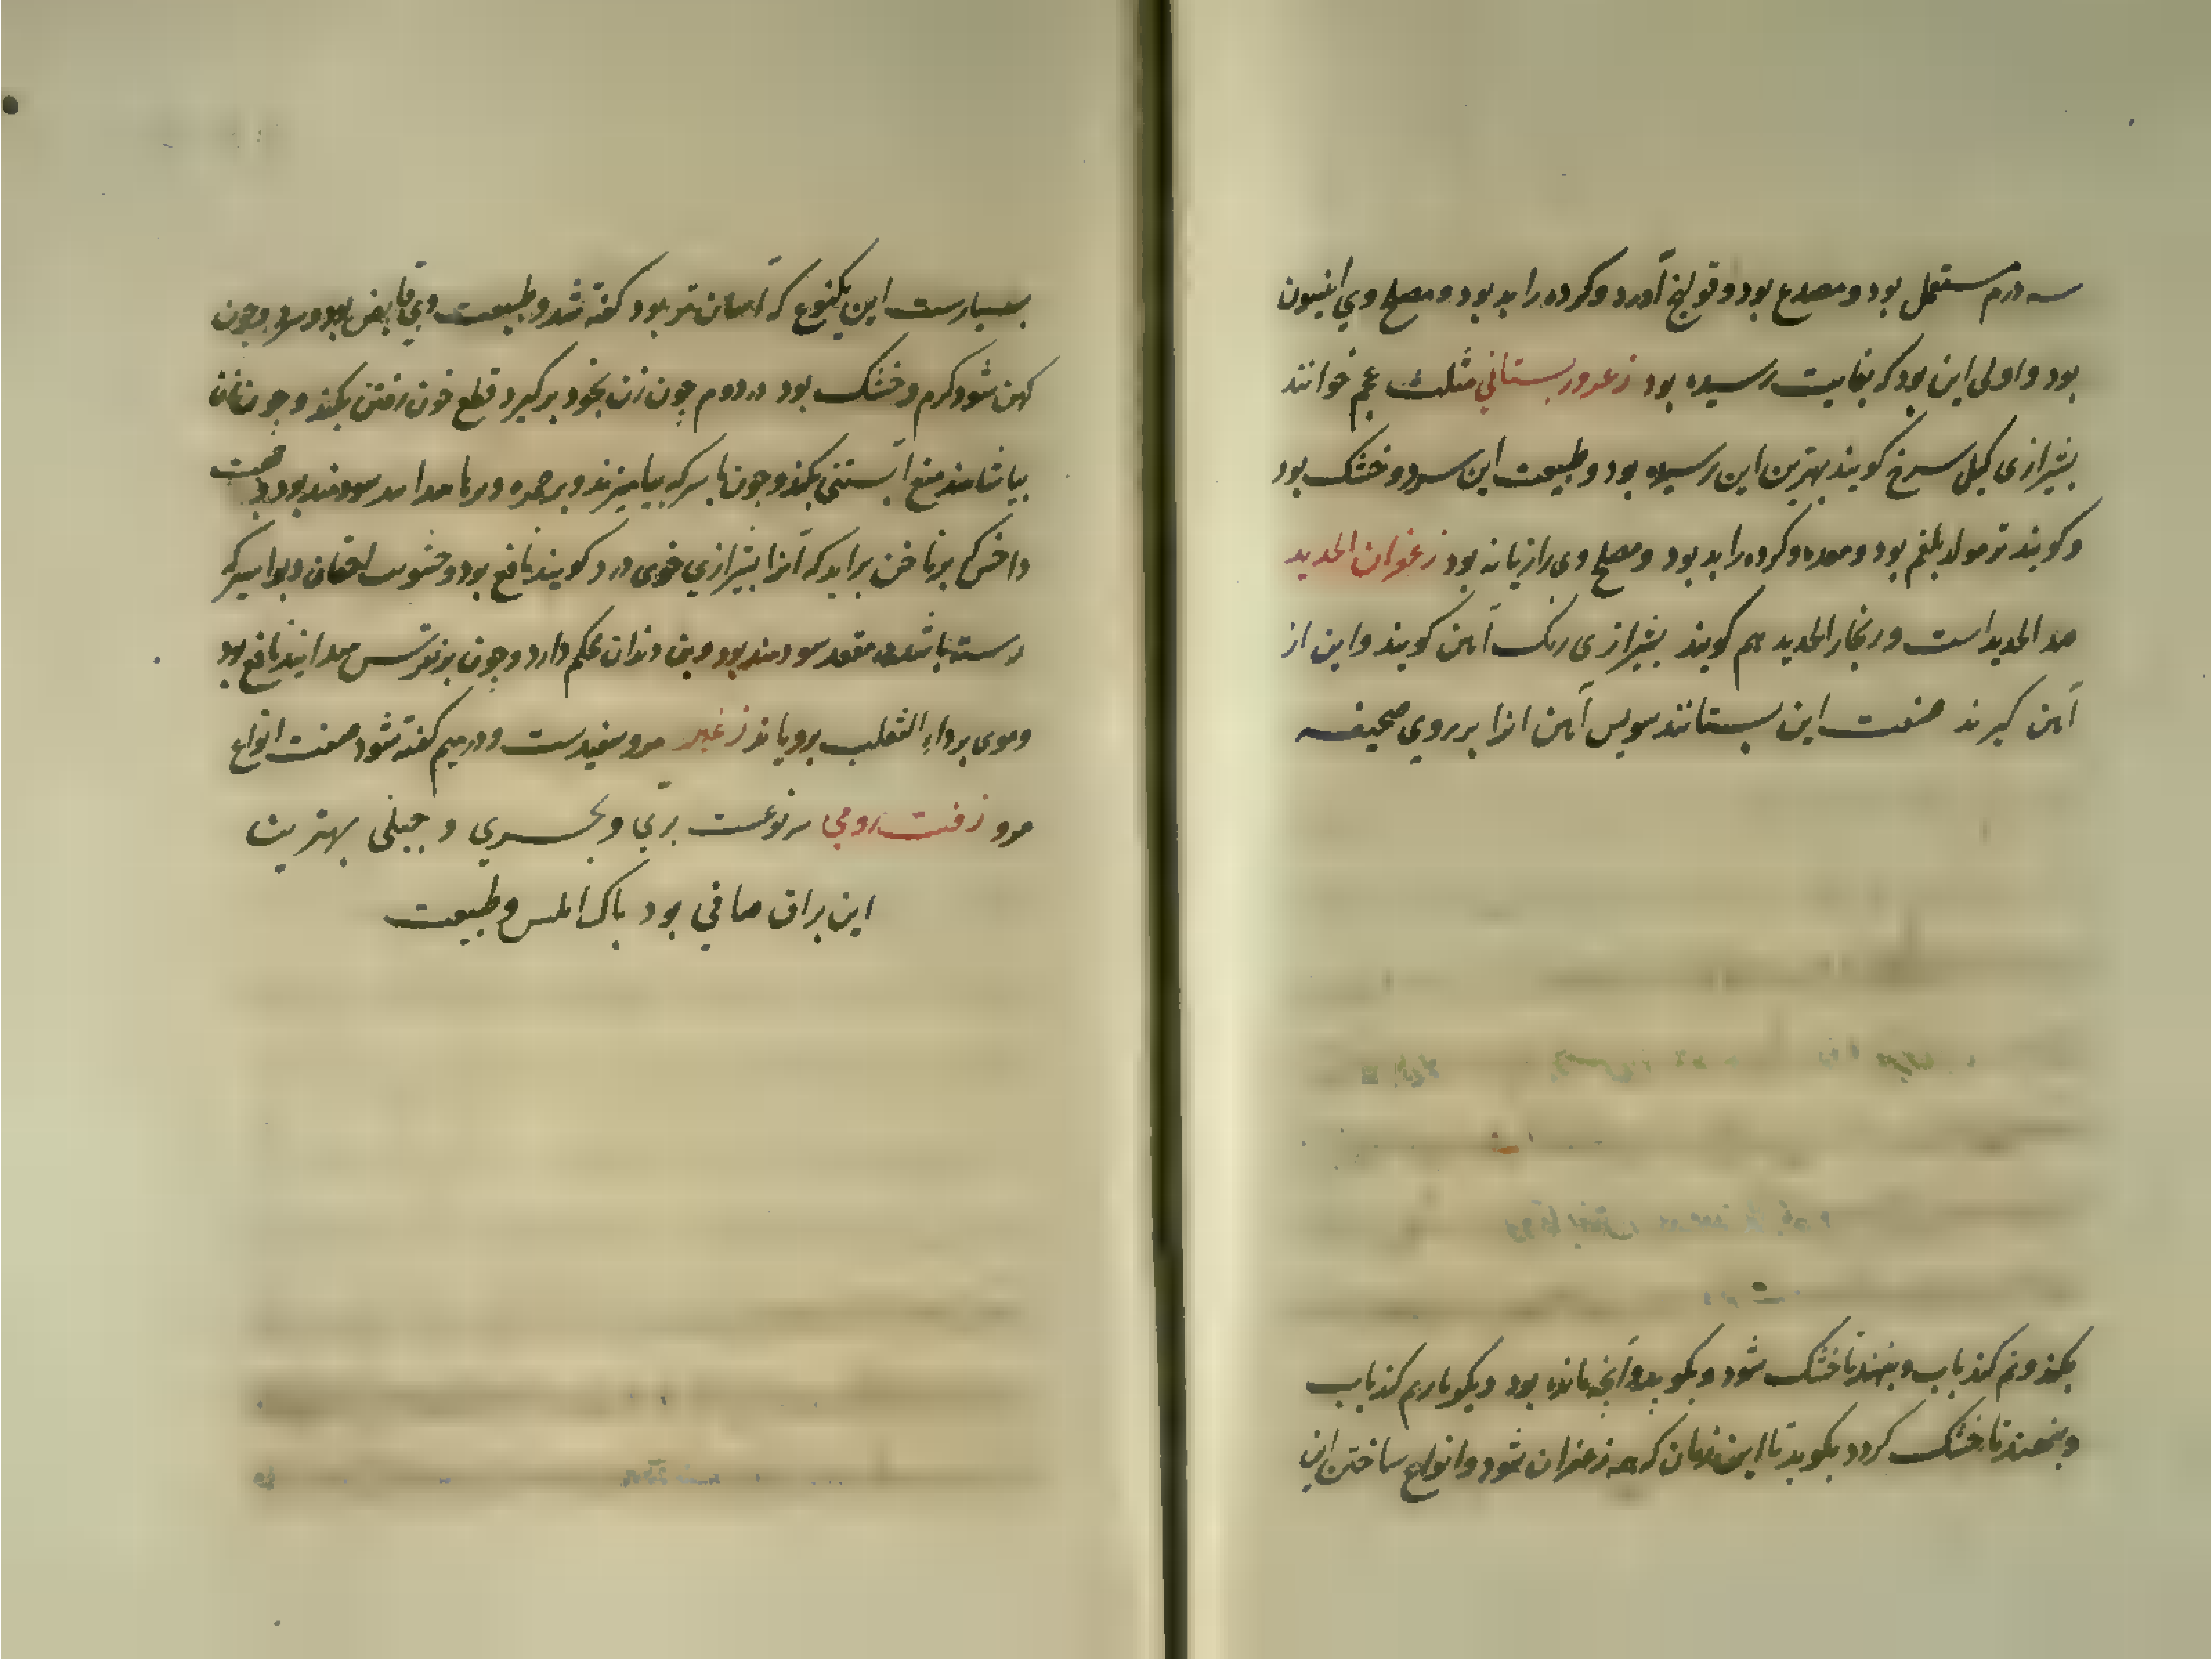 سه درم مستعمل بود و مصدع بود و قولنج آورد و کرده را بد بود و مصلح وي انیسون
بود و اولی این بود که بغایت رسیده بود زعرور بستاني مثلث عجم خوانند
بشیرازی کیل سرخ کویند بهترین این رسیده بود و طبیعت این سرد و خشک بود
و کویند تر مولد بلغم بود و معده و کرده را بد بود و مصلح وی رازیانه بود زعفران الحدید
صدا الحدید است و زنجار الحدید هم کویند بشیرازی زنک آهن کویند و این از
آهن کیرند صنعت این بستانند سویس آهن انرا بر روي صحیفه
بکند و نم کند باب و بنهند تا خشک شود و بکوبد و آنچه مانده بود دیکر بار نم کند باب
و بنهند تا خشک کردد بکوبد تا این زمان که همه زعفران شود و انواع ساختن این
بسیارست این یکنوع که آسان تر بود کفته شد و طبیعت وي قابض بود و سرد و چون
کهن شود کرم و خشک بود در دوم چون زن بخود برکیرد قطع خون رفتن بکند و چون زنان
بیاشامند منع آبستنی بکند و چون با سرکه بیامیزند و بر حمره سودمند بود و جهت
داخس که بر ناخن براید که آنرا بشیرازي خوی درد کویند نافع بود و خشونت اجفان و بواسیر که
رسته باشد در مقعد سودمند بود و بن دندان محکم دارد و چون بر نقرس نافع بود
و موی بر داء الثعلب برویاند زغبر مرو سفیدست و در میم کفته شود صفت انواع
مرو زفت رومي سه نوعست بري و بحسري و جبلی بهترین
این براق صافي بود پاک املس و طبیعت